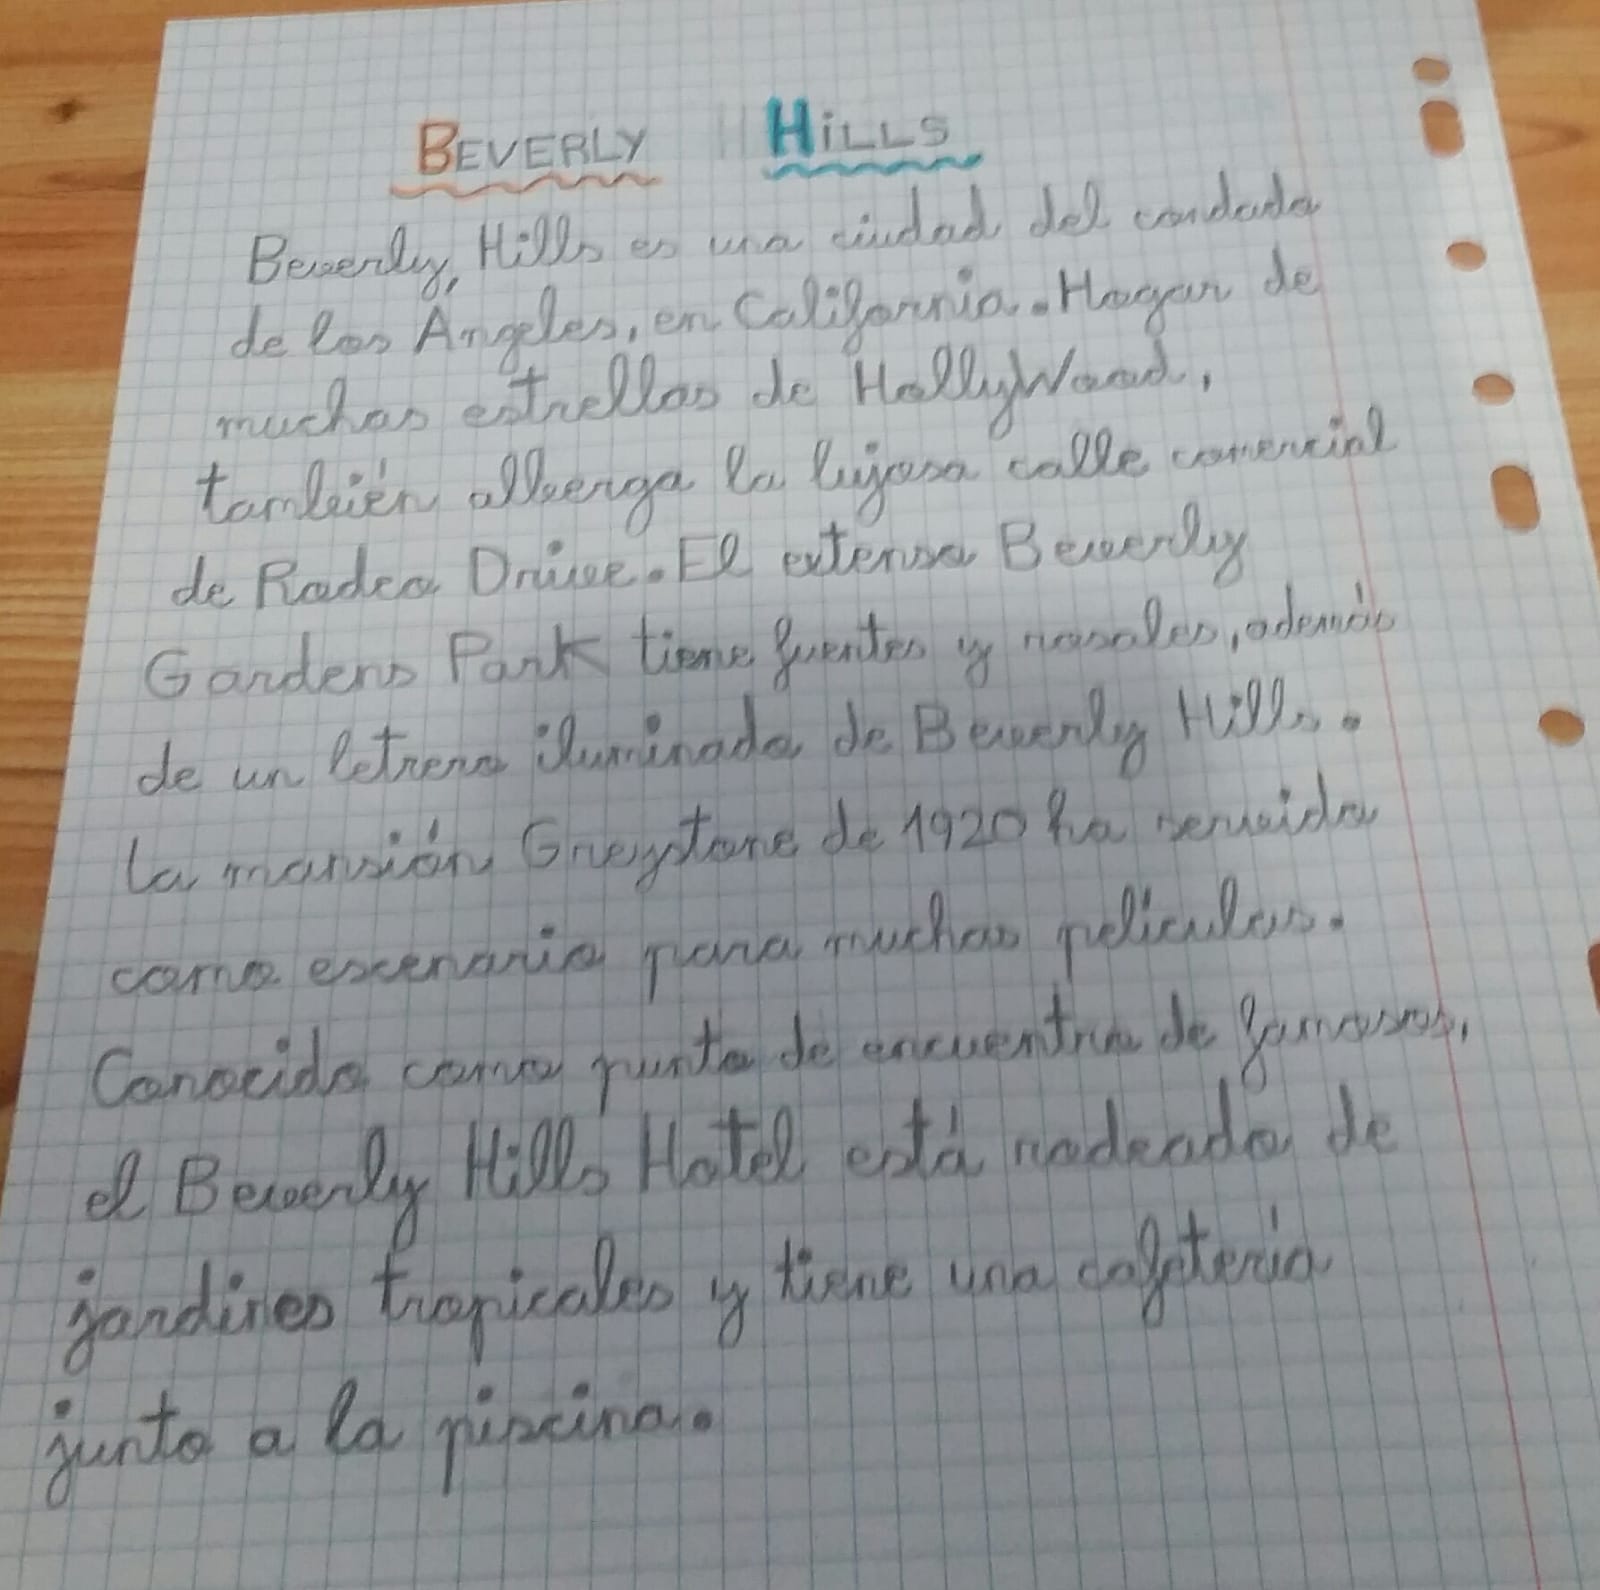 BEVERLY HiLLS
Beverly, Hills es una ciudad del condado
de los Ángeles, en California. Hogar de
muchas estrellas de HollyWood,
también alberga la lujosa calle comercial
de Rodeo Drive. El extenso Beverly
Gardens Park tiene fuentes y rosales, además
de un letrero iluminado de Beverly Hills.
La mansión Greystone de 1920 ha servido
como escenario para muchas peliculas.
Conocido como punto de encuentro de famosos,
el Beverly Hills Hotel está rodeado de
jardines tropicales y tiene una cafetería
junto a la piscina.